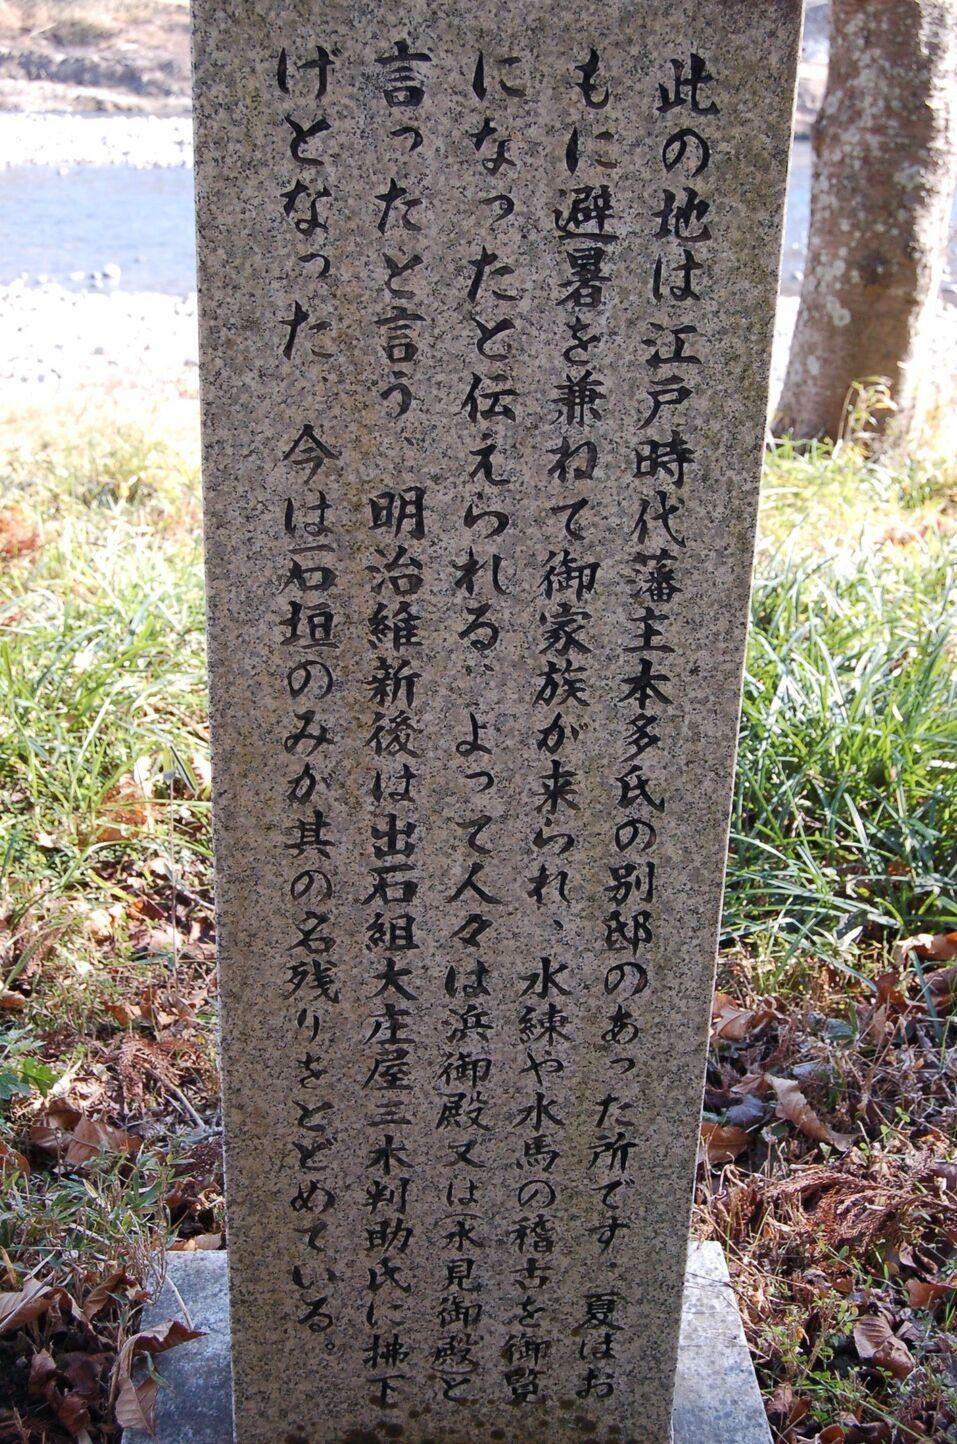 此の地は江戸時代藩主本多氏の別邸のあった所です.夏はお
もに避暑を兼ねて御家族が来られ、水練や水馬の稽古を御覧
になったと伝えられる、よって人々は浜御殿又は(水見御殿)と
言ったと言う、明治維新後は出石組大庄屋三木判助氏に拂下
げとなった、今は石垣のみが其の名残りをとどめている。